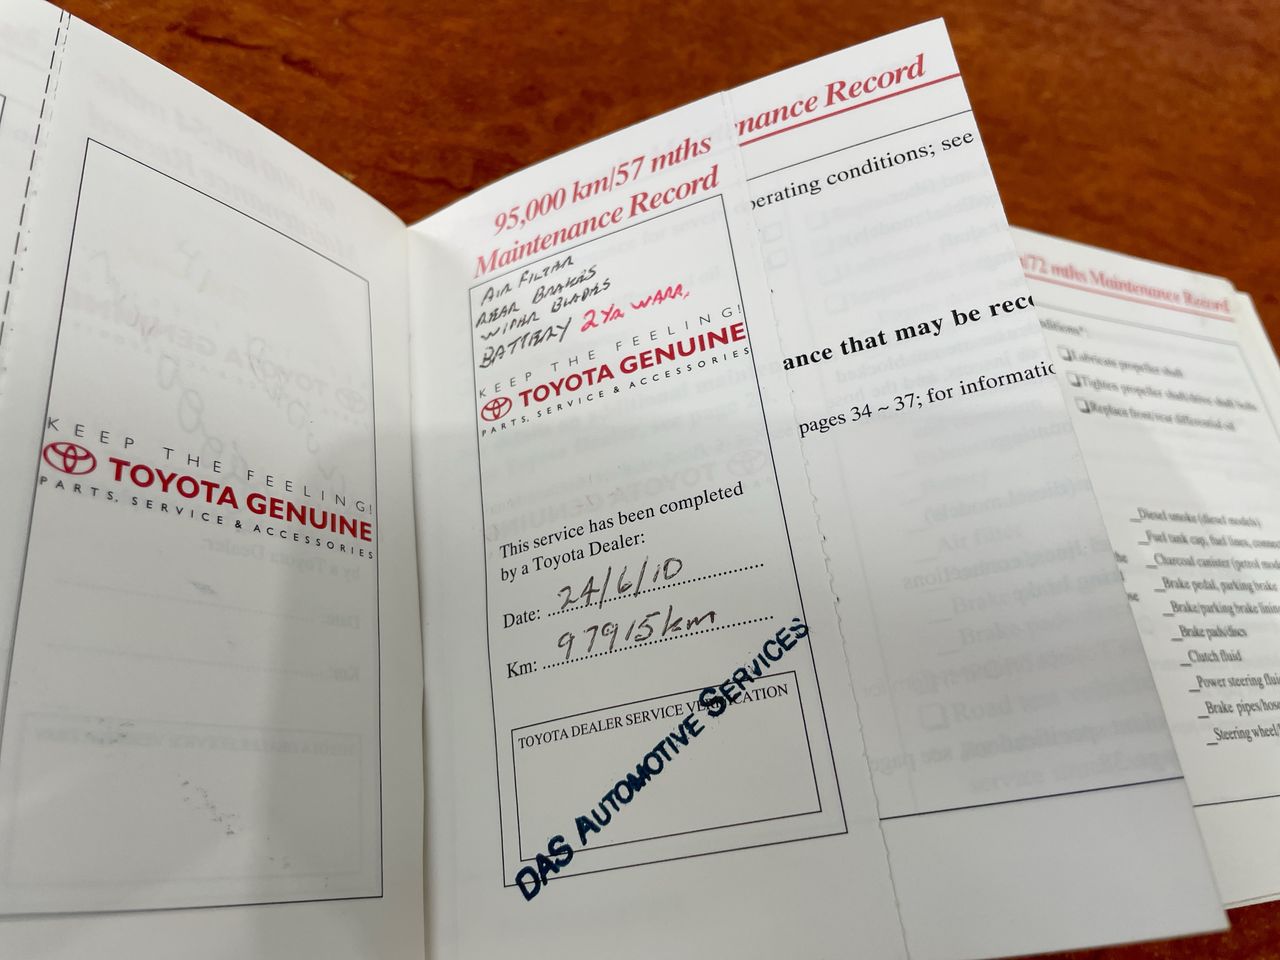 KEEP THE FEELING!
TOYOTA GENUINE
PARTS, SERVICE & ACCESSORIES
95,000 km/57 mths
Maintenance Record
AIR FILTER
REAR BRAKES
WIPER BLADES
BATTERY 2 YR WARR.
KEEP THE FEELING!
TOYOTA GENUINE
PARTS, SERVICE & ACCESSORIES
This service has been completed
by a Toyota Dealer:
Date: 24/6/10
Km: 97915km
TOYOTA DEALER SERVICE VERIFICATION
DAS AUTOMOTIVE SERVICES
nance Record
perating conditions; see
ance that may be rec
pages 34 ~ 37; for informatio
/72 mths Maintenance Record
Lubricate propeller shaft
Tighten propeller shaft/drive shaft bolts
Replace front/rear differential oil
Diesel smoke (diesel models)
Fuel tank cap, fuel lines, connec
Charcoal canister (petrol mode
Brake pedal, parking brake
Brake/parking brake lining
Brake pads/discs
Clutch fluid
Power steering flui
Brake pipes/hose
Steering wheel/